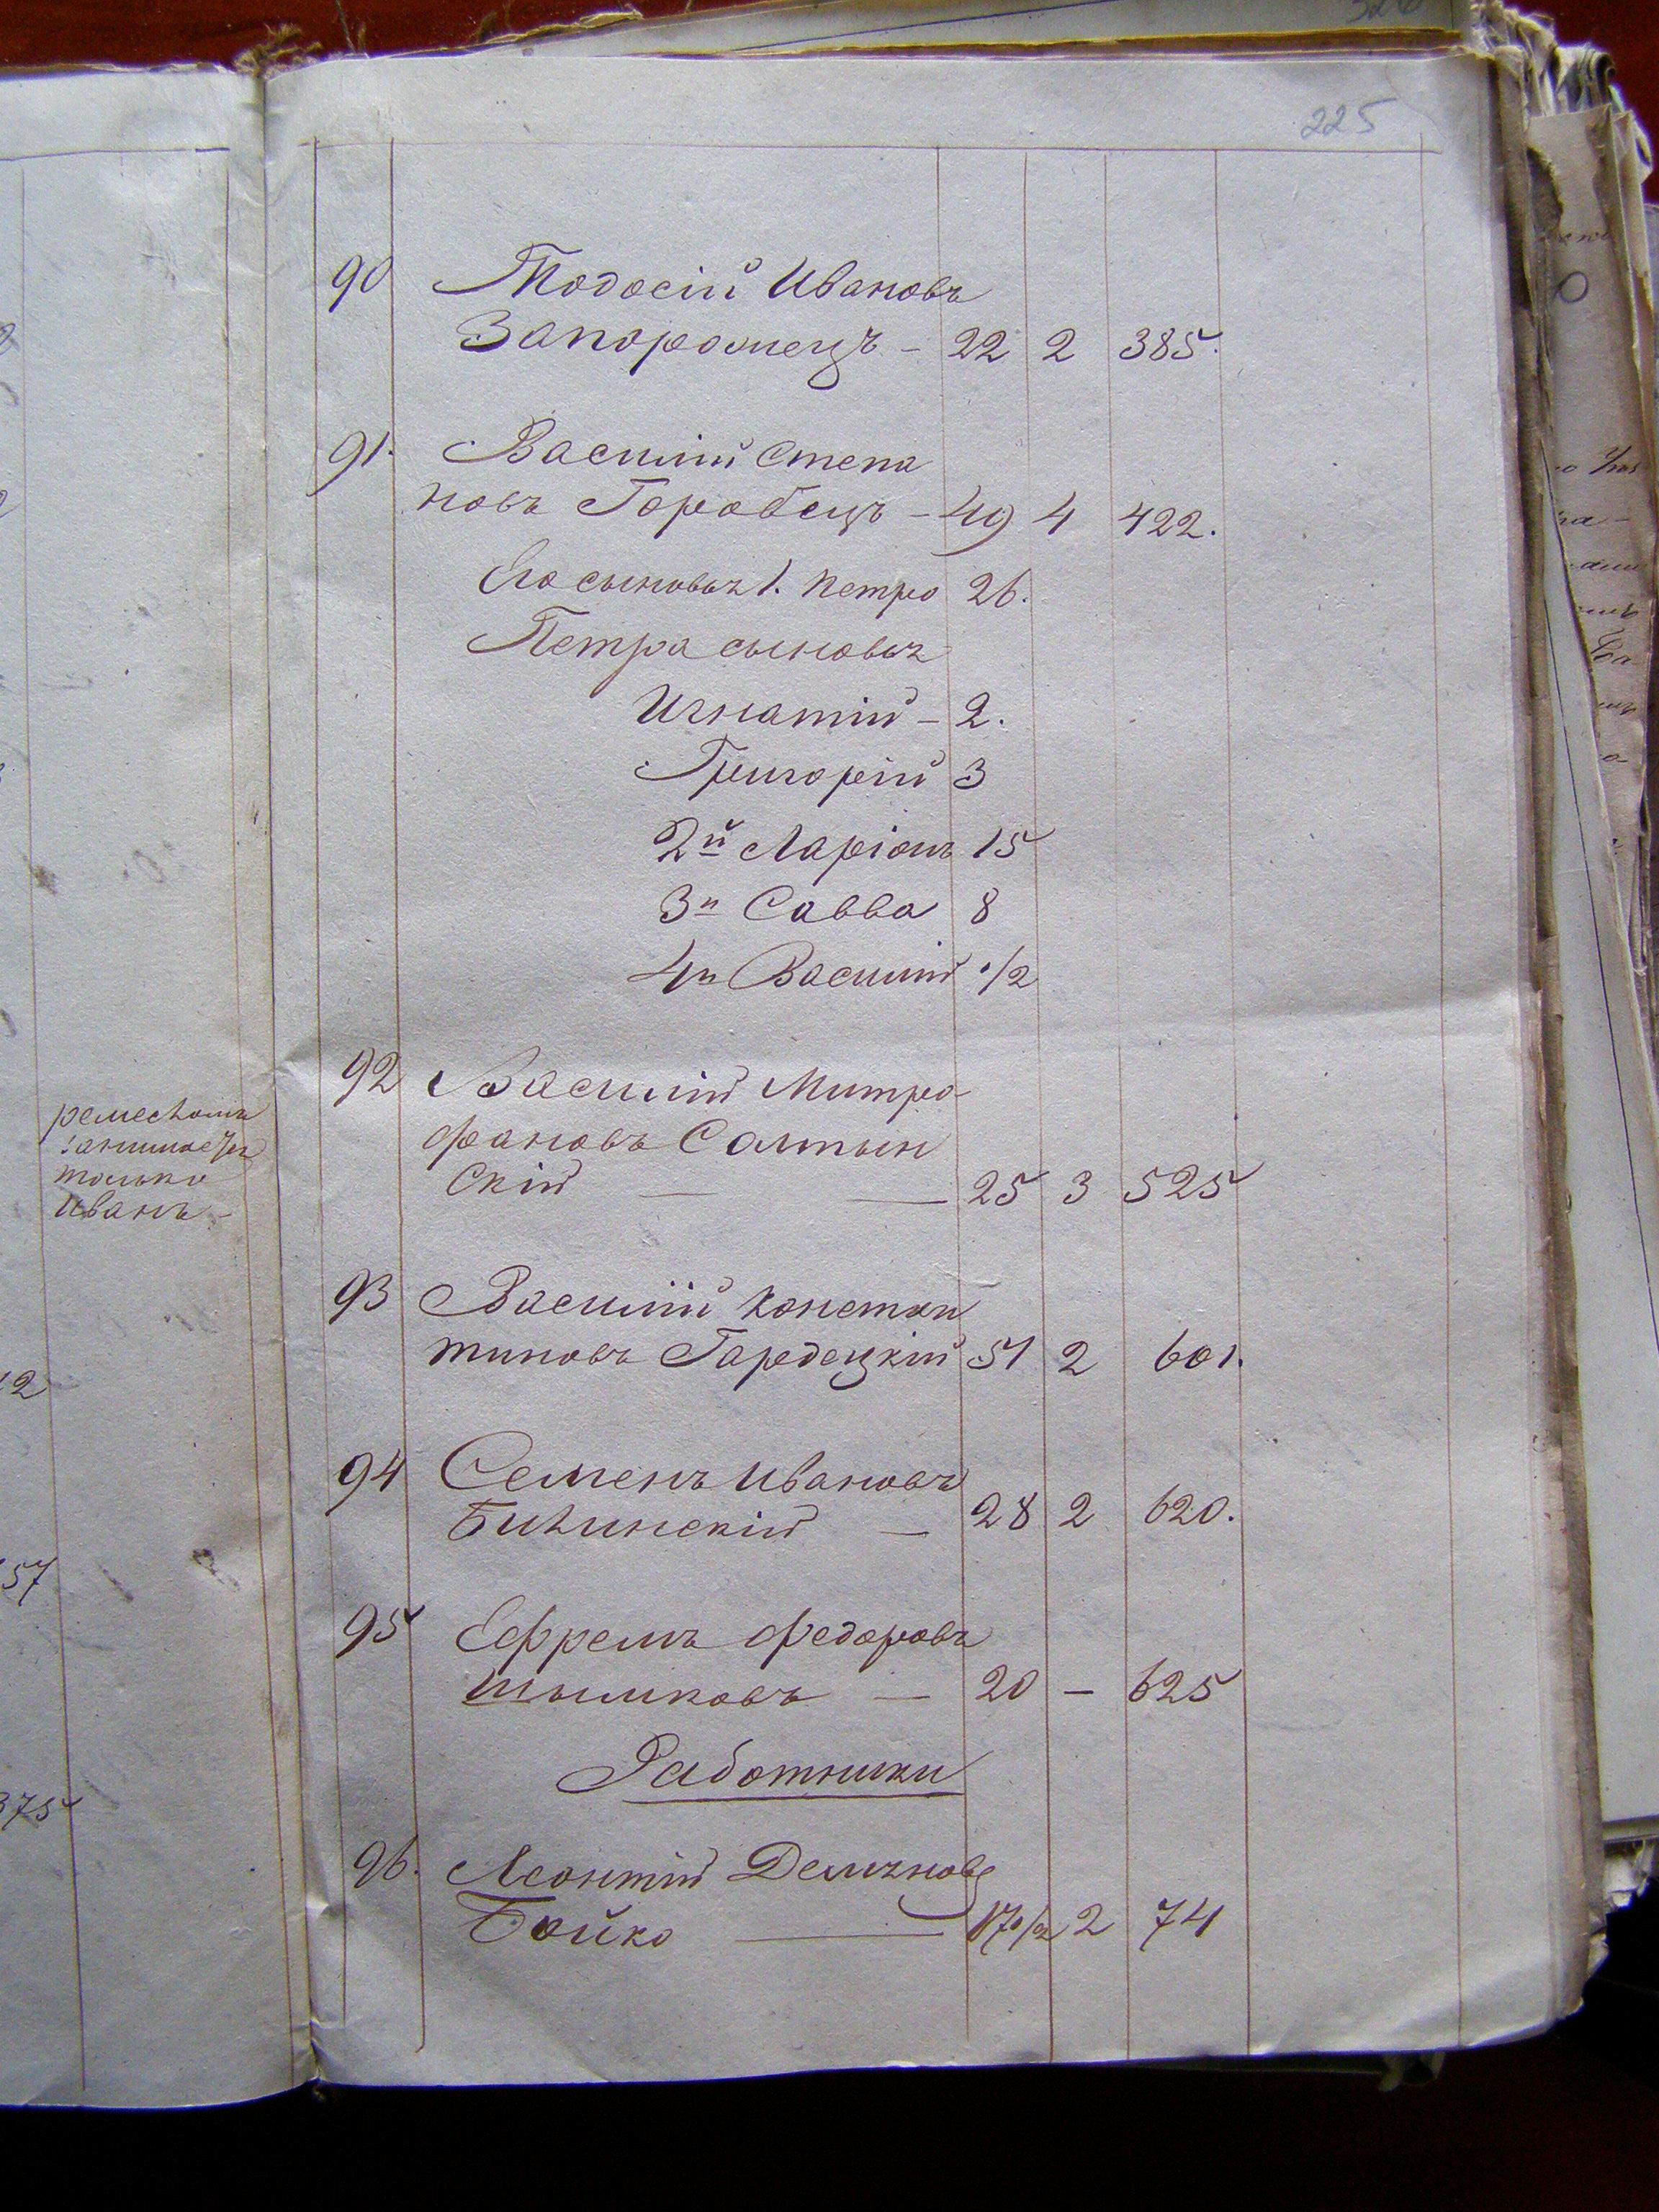 225
90 Тодосій Ивановъ
Запорожецъ - 22 2 385.
91. Василій Степа
новъ Горобецъ - 49 4 422.
Его сыновья 1. Петро 26.
Петра сыновья
Игнатій - 2.
Григорій 3
2й Ларіонъ 15
3й Савва 8
4й Василій 1/2
92 Василій Митро
фановъ Солтын
скій — — 25 3 525
93 Василій Констан
тиновъ Городецкій 51 2 601.
94 Семенъ Ивановъ
— 28 2 620.
95 Ефремъ Федоровъ
— 20 — 625
Работники
96. Леонтій
Бойко — 17 1/2 2 74
ремесломъ
занимается
только
Иванъ -
12
57
375